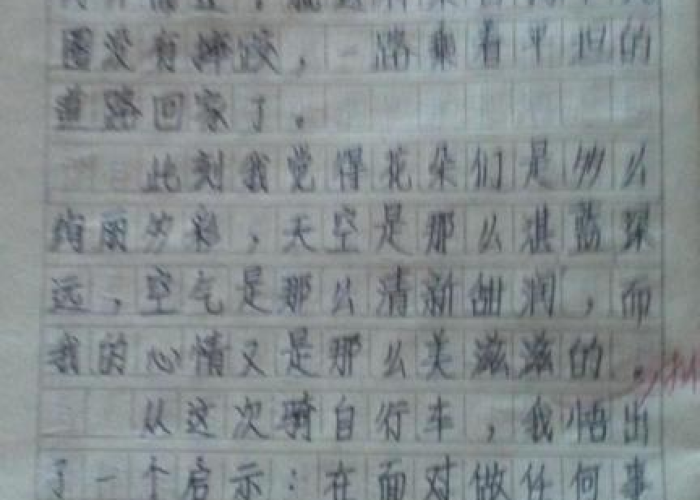 圈没有摔跤，一路乘着平坦的
道路回家了。
此刻我觉得花朵们是多么
绚丽多彩，天空是那么湛蓝深
远，空气是那么清新甜润，而
我的心情又是那么美滋滋的。
从这次骑自行车，我悟出
了一个启示：在面对做任何事